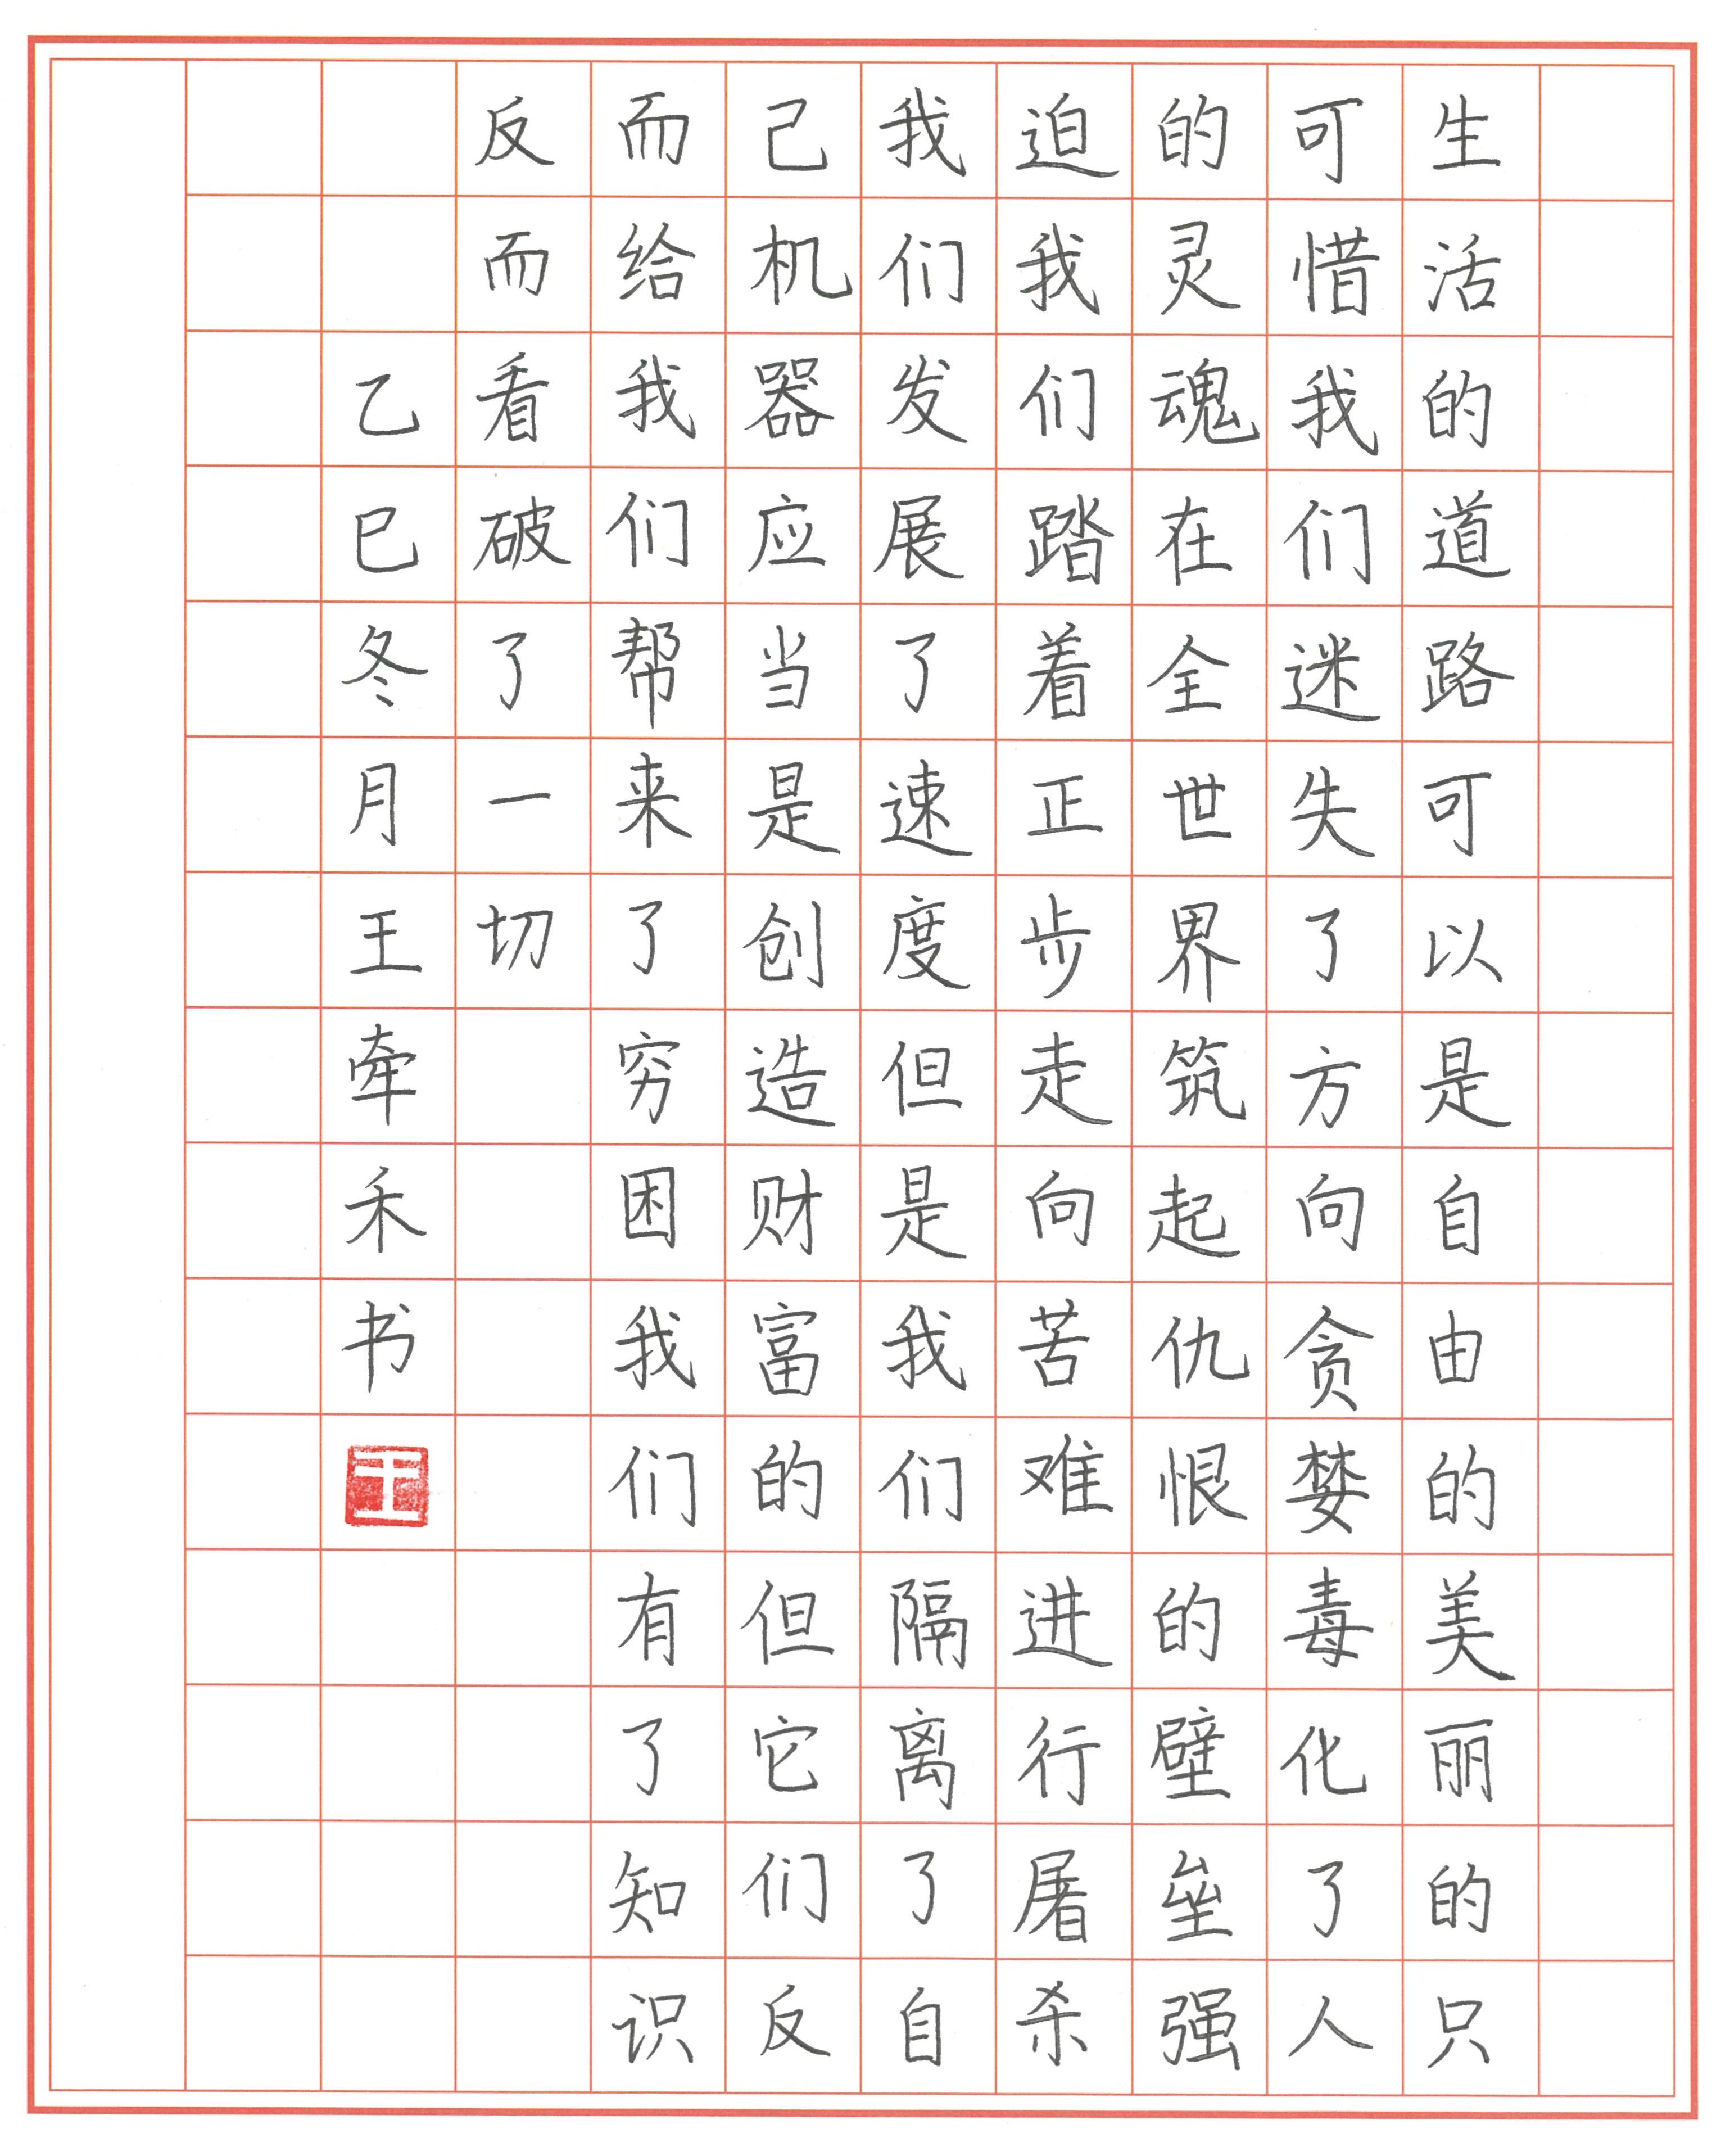 生活的道路可以是自由的美丽的只
可惜我们迷失了方向贪婪毒化了人
的灵魂在全世界筑起仇恨的壁垒强
迫我们踏着正步走向苦难进行屠杀
我们发展了速度但是我们隔离了自
己机器应当是创造财富的但它们反
而给我们帮来了穷困我们有了知识
反而看破了一切
乙巳冬月王牵禾书
王